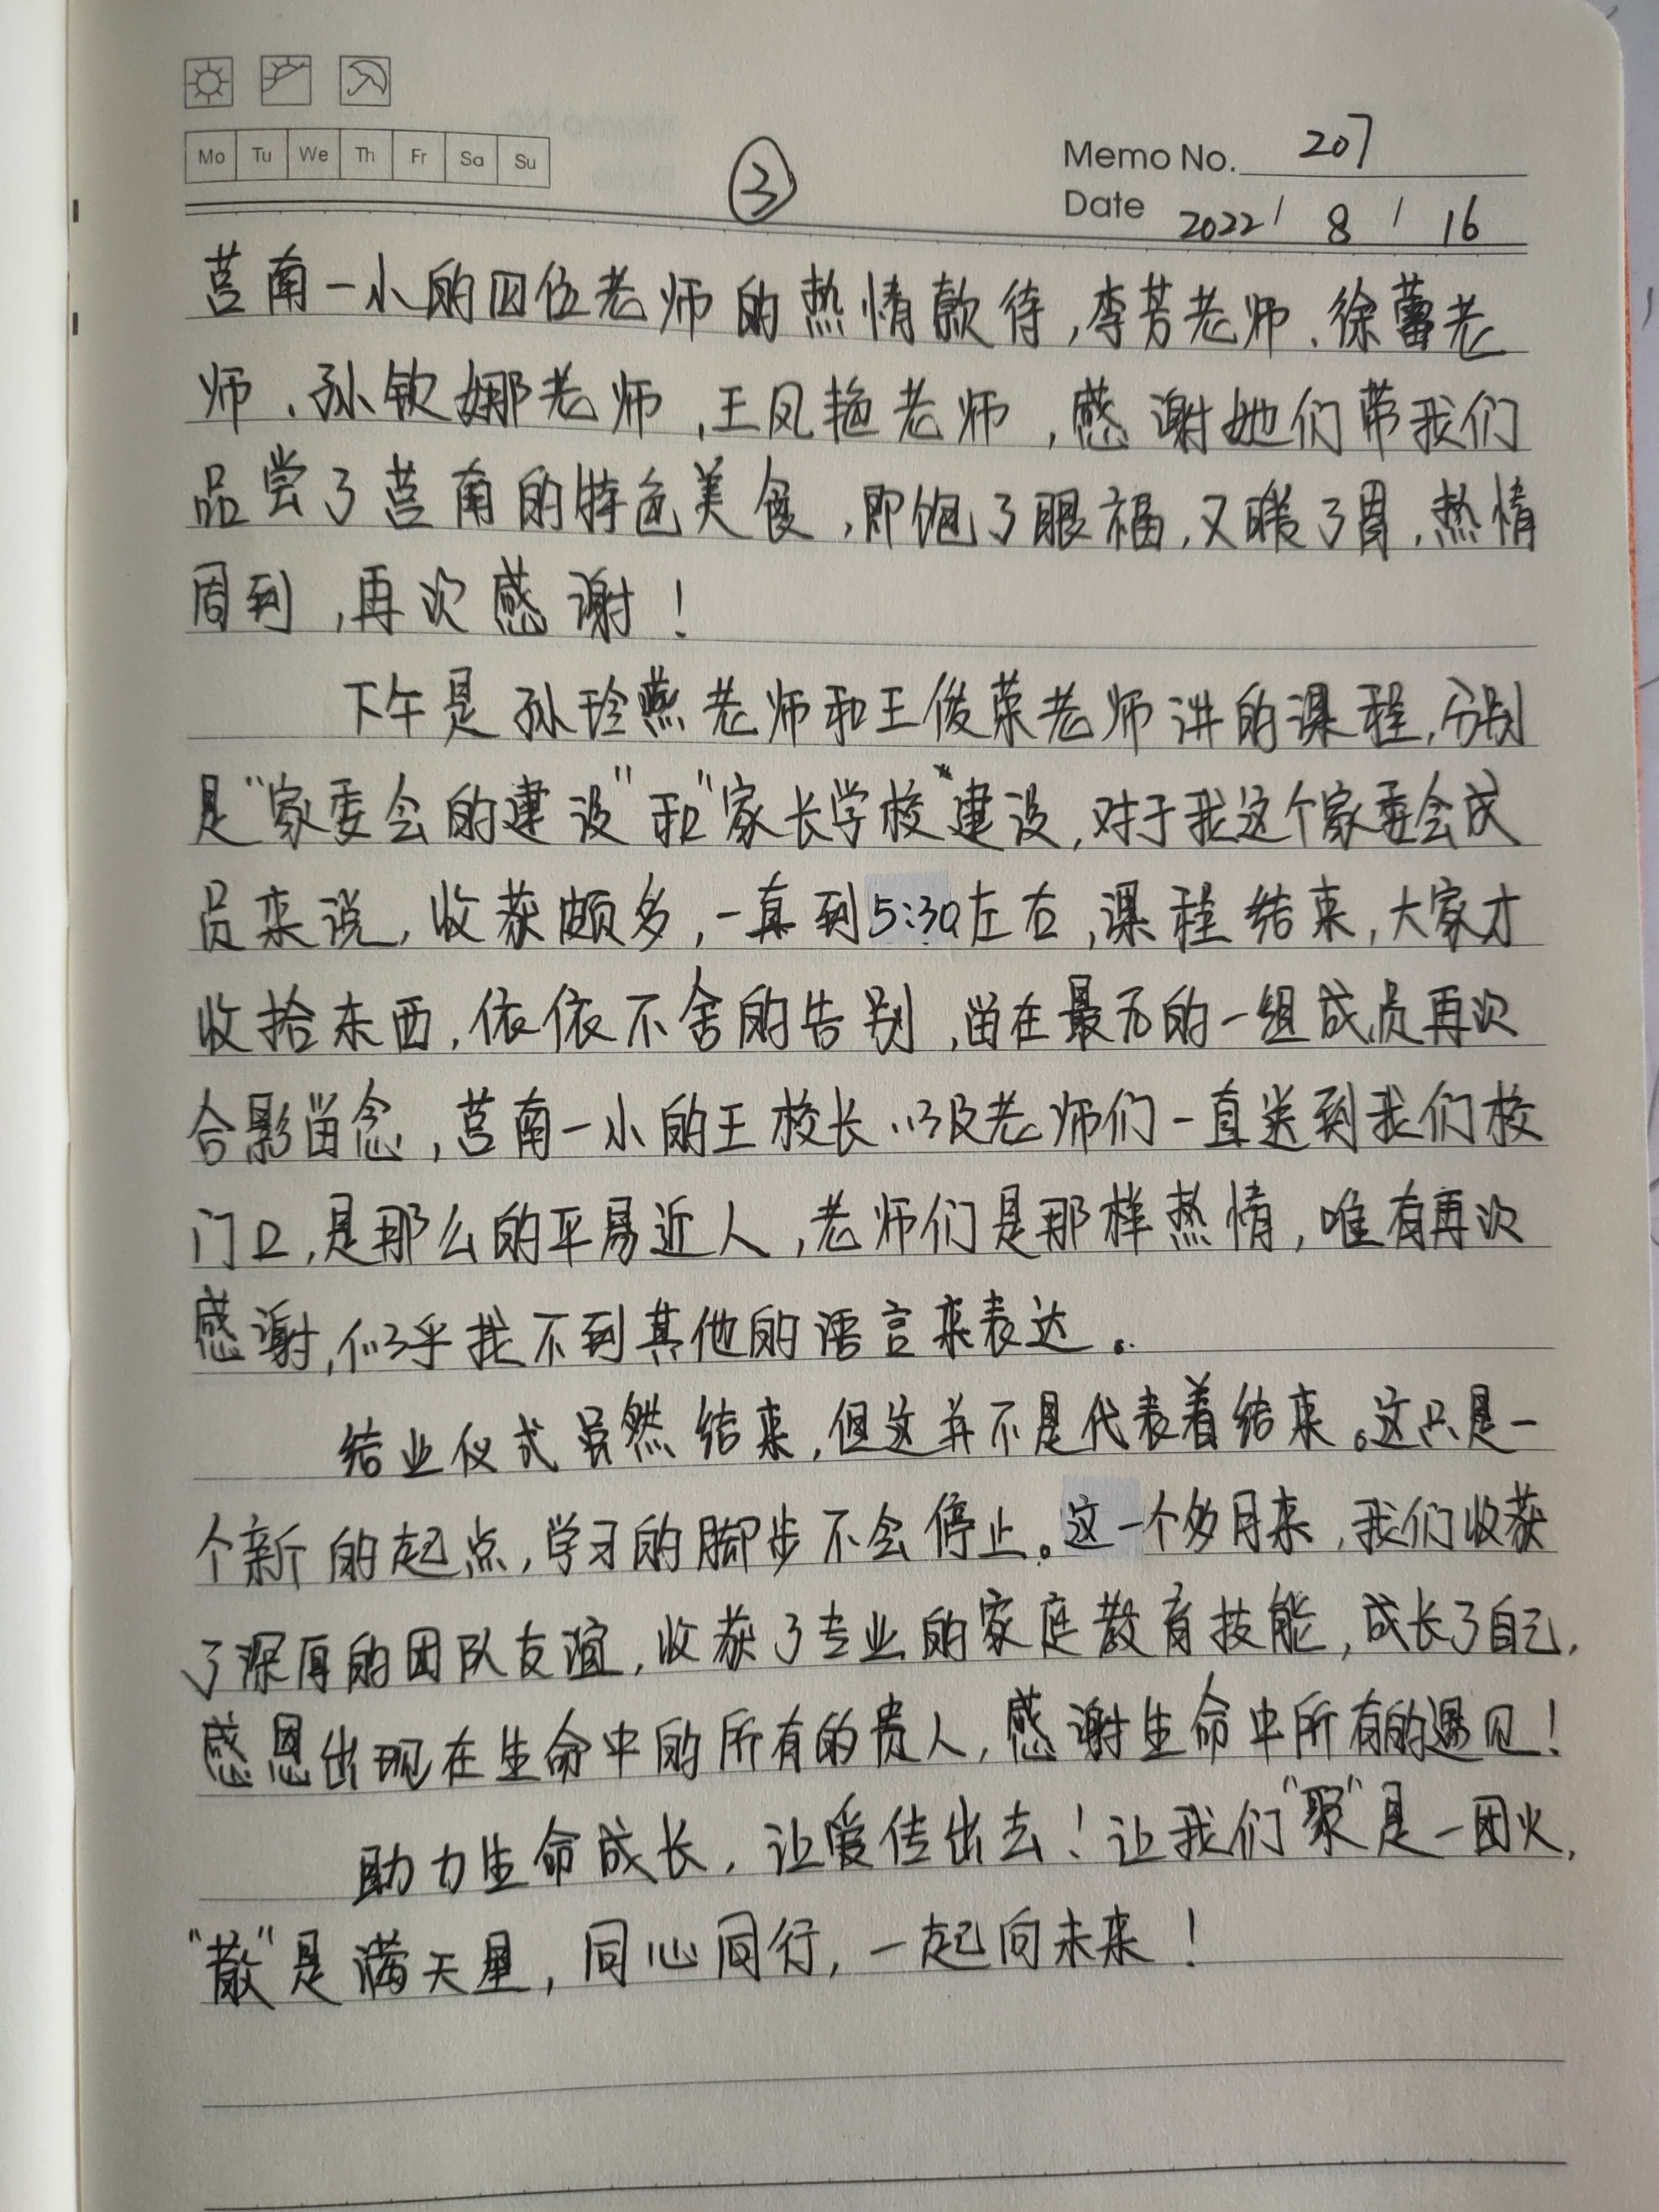 Mo Tu We Th Fr Sa Su
③
Memo No. 207
Date 2022 / 8 / 16
莒南一小的四位老师的热情款待,李芳老师、徐蕾老
师、孙钦娜老师,王凤艳老师,感谢她们带我们
品尝了莒南的特色美食,即饱了眼福,又暖了胃,热情
周到,再次感谢!
下午是孙玲燕老师和王俊荣老师讲的课程,分别
是“家委会的建设”和“家长学校”建设,对于我这个家委会成
员来说,收获颇多,一直到5:30左右,课程结束,大家才
收拾东西,依依不舍的告别,留在最后的一组成员再次
合影留念,莒南一小的王校长以及老师们一直送到我们校
门口,是那么的平易近人,老师们是那样热情,唯有再次
感谢,似乎找不到其他的语言来表达。
结业仪式虽然结束,但这并不是代表着结束。这只是一
个新的起点,学习的脚步不会停止。这一个多月来,我们收获
了深厚的团队友谊,收获了专业的家庭教育技能,成长了自己,
感恩出现在生命中的所有的贵人,感谢生命中所有的遇见!
助力生命成长,让爱传出去!让我们“聚”是一团火,
“散”是满天星,同心同行,一起向未来!